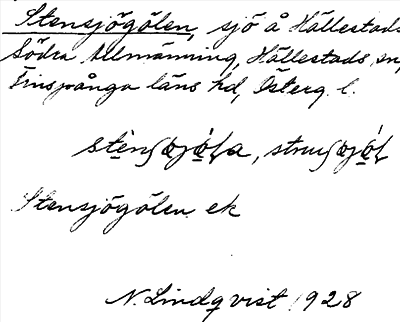 Stensjögölen, sjö å Hällestads
Södra Allmänning, Hällestads sn,
Finspånga läns hd, Österg. l.
Stensjögölen ek
N. Lindqvist 1928